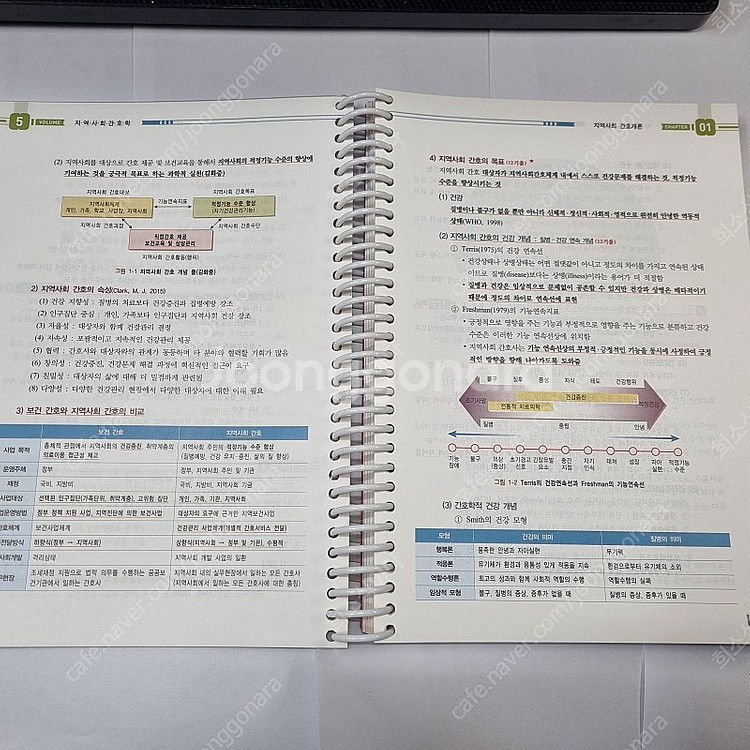 5 VOLUME 지·역·사·회·간·호·학
(2) 지역사회를 대상으로 간호 제공 및 보건교육을 통해서 지역사회의 적정기능 수준의 향상에
기여하는 것을 궁극적 목표로 하는 과학적 실천(김화중)
지역사회 간호대상 지역사회 간호목표
지역사회체계 : 기능연속지표 적정기능 수준 향상
개인, 가족, 학교, 사업장, 지역사회 (자기건강관리기능)
지역사회 간호과정 지역사회 간호수단
직접간호 제공
보건교육 및 상담관리
지역사회 간호활동(행위)
그림 1-1 지역사회 간호 개념 틀(김화중)
2) 지역사회 간호의 속성(Clark, M. J. 2015)
(1) 건강 지향성 : 질병의 치료보다 건강증진과 질병예방 강조
(2) 인구집단 중심 : 개인, 가족보다 인구집단과 지역사회 건강 강조
(3) 자율성 : 대상자와 함께 건강관리 결정
(4) 지속성 : 포괄적이고 지속적인 건강관리 제공
(5) 협력 : 간호사와 대상자와의 관계가 동등하며 타 분야와 협력할 기회가 많음
(6) 창의성 : 건강증진, 건강문제 해결 과정에 혁신적인 접근이 요구
(7) 친밀성 : 대상자의 삶에 대해 더 밀접하게 관련됨
(8) 다양성 : 다양한 건강관리 현장에서 다양한 대상자에 대한 이해 필요
3) 보건 간호와 지역사회 간호의 비교
보건 간호 지역사회 간호
사업 목적 총체적 관점에서 지역사회의 건강증진, 취약계층의 의료이용 접근성 제고 지역사회 주민의 적정기능 수준 향상
(질병예방, 건강 유지·증진, 삶의 질 향상)
운영주체 정부 정부, 지역사회 주민 및 기관
재정 국비, 지방비 국비, 지방비, 지역사회 기금
사업대상 선택된 인구집단(가족단위, 취약계층), 고위험 집단 개인, 가족, 기관, 지역사회
업운영방법 정부 정책 지원 사업, 지역진단에 의한 보건사업 대상자의 요구에 근거한 지역보건사업
보건사업체계 건강관리 사업체계(개별적 간호서비스 전달)
전달방식 하향식(정부 → 지역사회) 상향식(지역사회 → 정부 및 기관), 수평적
사회개발 격리상태 지역사회 개발 사업의 일환
조세재정 지원으로 법적 의무를 수행하는 공공보건기관에서 일하는 간호사 지역사회 내의 실무현장에서 일하는 모든 간호사
(지역사회에서 일하는 모든 간호사에 대한 총칭)
지역사회 간호개론 CHAPTER 01
4) 지역사회 간호의 목표 (12기출) ★
지역사회 간호 대상자가 지역사회간호체계 내에서 스스로 건강문제를 해결하는 것, 적정기능
수준을 향상시키는 것
(1) 건강
질병이나 불구가 없을 뿐만 아니라 신체적·정신적·사회적·영적으로 완전히 안녕한 역동적
상태(WHO, 1998)
(2) 지역사회 간호의 건강 개념 : 질병-건강 연속 개념 (12기출)
① Terris(1975)의 건강 연속선
• 건강상태나 상병상태는 어떤 절댓값이 아니고 정도의 차이를 가지고 연속된 상태
이므로 질병(disease)보다는 상병(illness)이라는 용어가 더 적절함
• 질병과 건강은 임상적으로 문제없이 공존할 수 있지만 건강과 상병은 배타적이기
때문에 정도의 차이로 연속선에 표현
② Freshman(1979)의 기능연속지표
• 긍정적으로 영향을 주는 기능과 부정적으로 영향을 주는 기능으로 분류하고 건강
수준은 이러한 기능 연속선상에 위치함
• 지역사회 간호사는 기능 연속선상의 부정적·긍정적인 기능을 동시에 사정하여 긍정
적인 방향을 향해 나아가도록 도와줌
불구 징후 증상 지식 태도 건강행위
조기사망 건강증진 적정건강
전통적 치료의학
질병 중립 안녕
기능장애 불구 역상(증상) 조기경고신호 긴장유발요소 중간지점 자기인식 대처 성장 자아실현 적정기능수준
그림 1-2 Terris의 건강연속선과 Freshman의 기능연속선
(3) 간호학적 건강 개념
① Smith의 건강 모형
모형 건강의 의미 질병의 의미
행복론 풍족한 안녕과 자아실현 무기력
적응론 유기체가 환경과 융통성 있게 적응을 지속 환경으로부터 유기체의 소외
역할수행론 최고의 성과와 함께 사회적 역할의 수행 역할수행의 실패
임상적 모형 불구, 질병의 증상, 증후가 없을 때 질병의 증상, 증후가 있을 때
joonggonara
cafe.naver.com/joonggonara